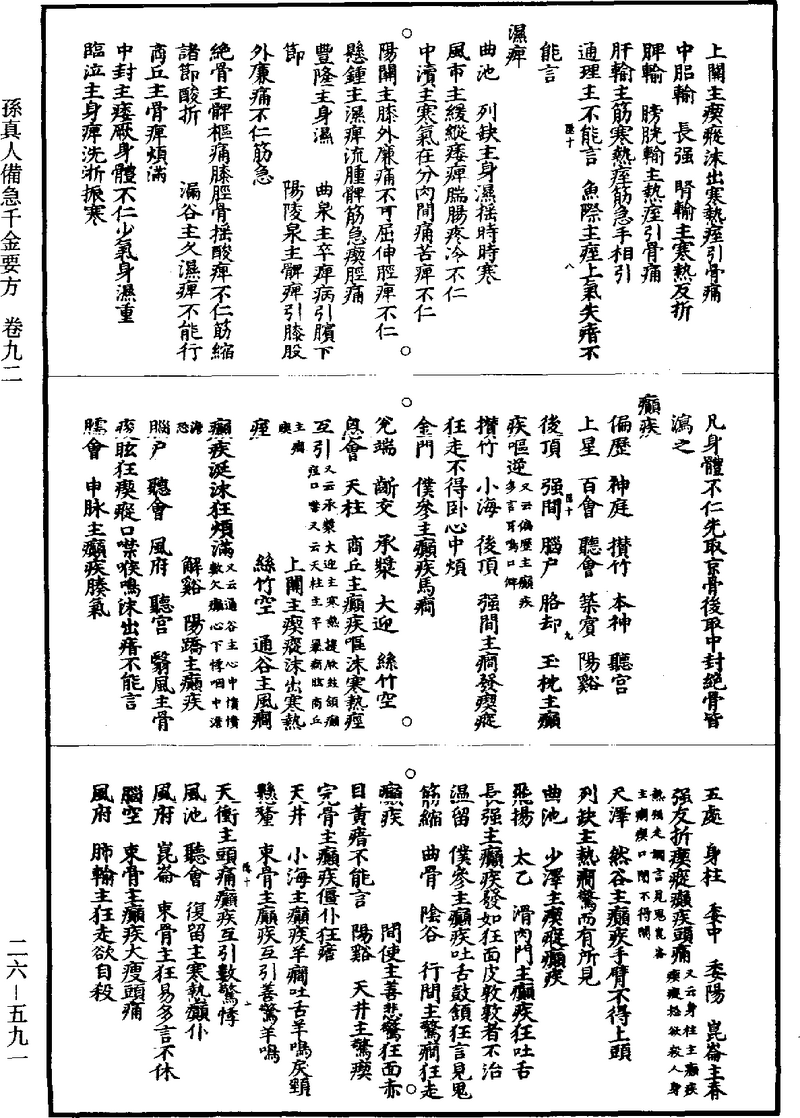 孫真人備急千金要方　卷九二
二六—五九一
上關主瘈瘲沫出寒熱痓引骨痛
中膂輸　長强　腎輸主寒熱反折
脾輸　膀胱輸主熱痓引骨痛
肝輸主筋寒熱痓筋急手相引
通理主不能言　魚際主痓上氣失瘖不
能言
濕痺
曲池　列缺主身濕揺時時寒
風市主緩縱痿痺腨腸疼冷不仁
中瀆主寒氣在分肉間痛苦痺不仁
陽關主膝外廉痛不可屈伸脛痺不仁
懸鍾主濕痺流腫髀筋急瘈脛痛
豐隆主身濕　曲泉主卒痺病引臏下
節　陽陵泉主髀痺引膝股
外廉痛不仁筋急
絶骨主髀樞痛膝脛骨揺酸痺不仁筋縮
諸節酸折　漏谷主久濕痺不能行
商丘主骨痺煩滿
中封主痿厥身體不仁少氣身濕重
臨泣主身痺洗淅振寒
凡身體不仁先取京骨後取中封絶骨皆
瀉之
癲疾
偏歷　神庭　攢竹　本神　聽宫
上星　百會　聽會　築賓　陽谿
後頂　强間　腦户　胳却　玉枕主癲
疾嘔逆又云偏歷主癲疾多言耳鳴口僻
攢竹　小海　後頂　强間主癇發瘈瘲
狂走不得卧心中煩
金門　僕參主癲疾馬癇
兊端　齗交　承漿　大迎　絲竹空
顖會　天柱　商丘主癲疾嘔沫寒熱痙
互引又云承漿大迎主寒熱悽厥鼓頷癲痙口噤又云天柱主卒暴癇眩商丘
主癇瘈　上關主瘈瘲沫出寒熱
痙　絲竹空　通谷主風癇
癲疾涎沫狂煩滿又云通谷主心中憒憒數欠癲心下悸咽中澹
澹恐　解谿　陽蹻主癲疾
腦户　聽會　風府　聽宫　翳風主骨
痠眩狂瘈瘲口噤喉鳴沫出瘖不能言
臑會　申脉主癲疾腠氣
五處　身柱　委中　委陽　崑崙主脊
强反折瘈瘲癲疾頭痛又云身柱主癲疾瘈瘲怒欲殺人身
熱狂走讝言見鬼崑崙主癇瘈口閉不得開
尺澤　然谷主癲疾手臂不得上頭
列缺主熱癇驚而有所見
曲池　少澤主瘈瘲癲疾
飛揚　太乙　滑肉門主癲疾狂吐舌
長强主癲疾發如狂面皮敦敦者不治
温留　僕參主癲疾吐舌鼓頷狂言見鬼
筋縮　曲骨　陰谷　行間主驚癇狂走
癲疾　間使主善悲驚狂面赤
目黃瘖不能言　陽谿　天井主驚瘈
完骨主癲疾僵仆狂瘧
天井　小海主癲疾羊癇吐舌羊鳴戾頸
懸釐　束骨主癲疾互引善驚羊鳴
天衝主頭痛癲疾互引數驚悸
風池　聽會　復留主寒熱癲仆
風府　崑崙　束骨主狂易多言不休
腦空　束骨主癲疾大瘦頭痛
風府　肺輸主狂走欲自殺